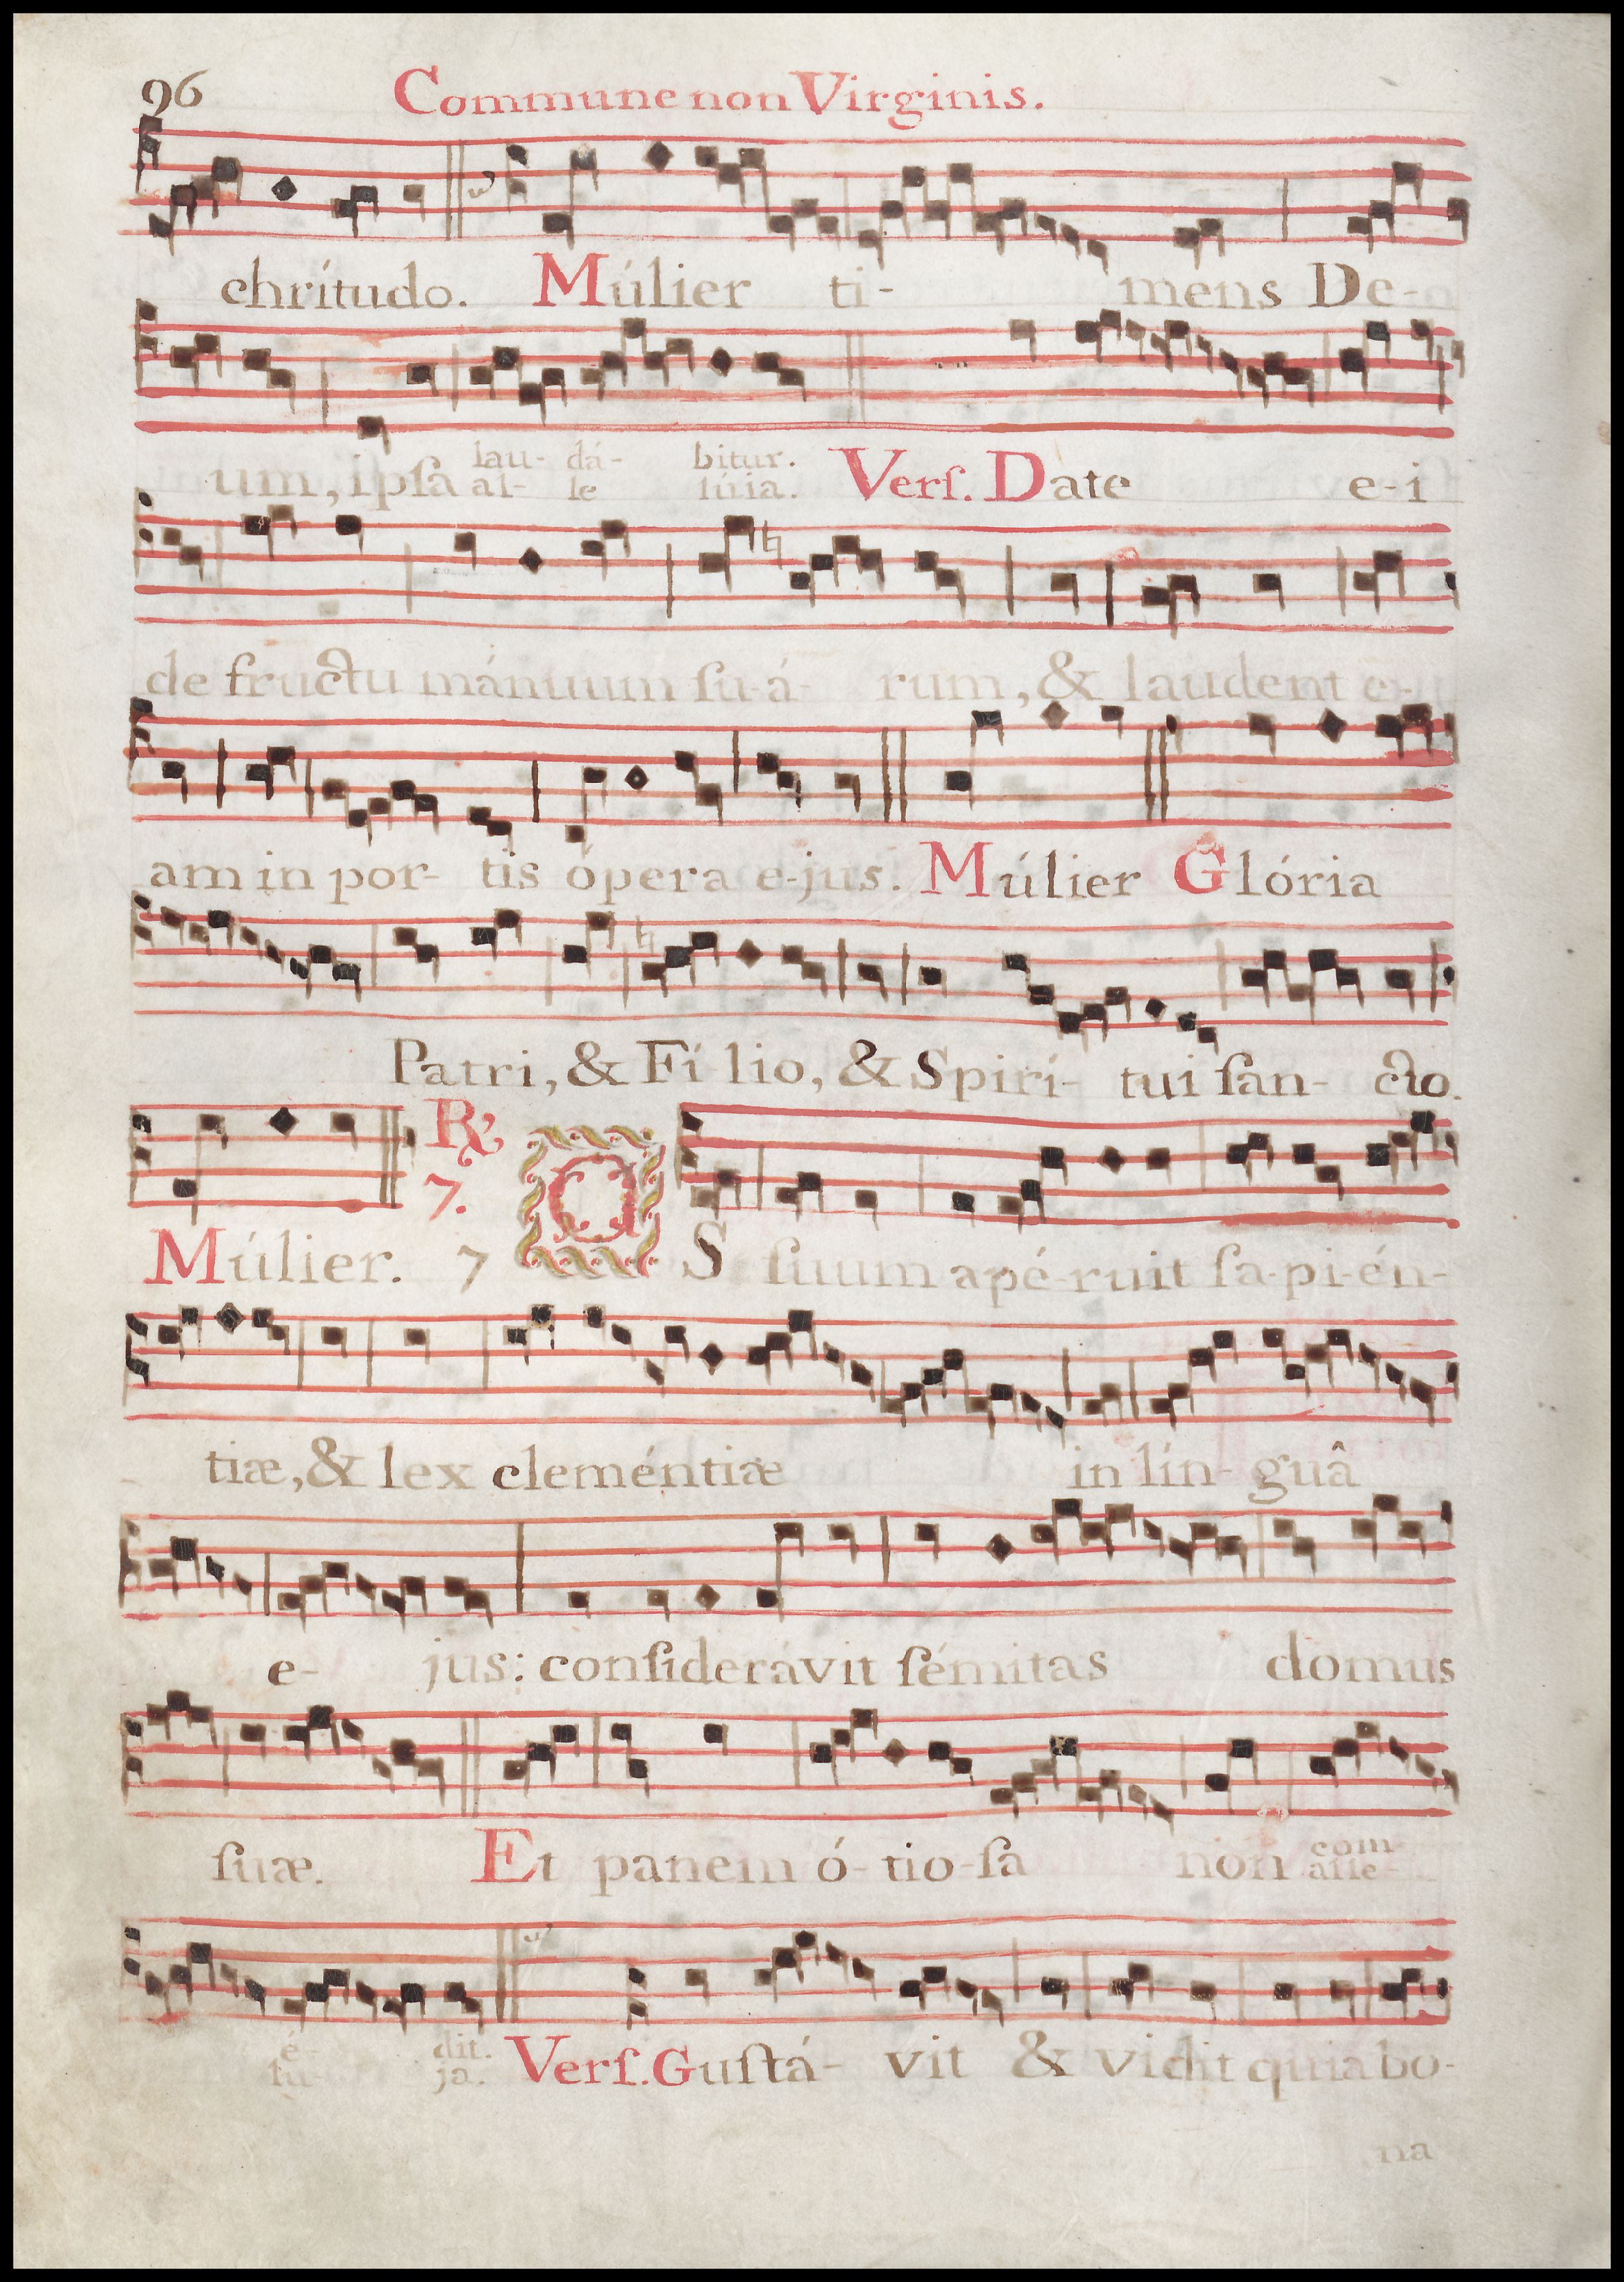 96 Commune non Virginis.
chrítudo. Múlier ti- mens De-
um, ipſa lau- dá- bitur. Verſ. Date e-i
al- le lúia.
de fructu mánuum ſu-á- rum, & laudent e-
am in por- tis ópera e-jus. Múlier Glória
Patri, & Fí lio, & Spirí- tui ſan- cto.
℟
7.
Múlier. 7 OS ſuum apé-ruit ſa-pi-én-
tiæ, & lex cleméntiæ in lín- guâ
e- jus: conſiderávit ſémitas domus
ſuæ. Et panem ó-tio-ſa non com-
alle-
é- dit. Verſ. Guſtá- vit & vidit quia bo-
lú- ja.
na